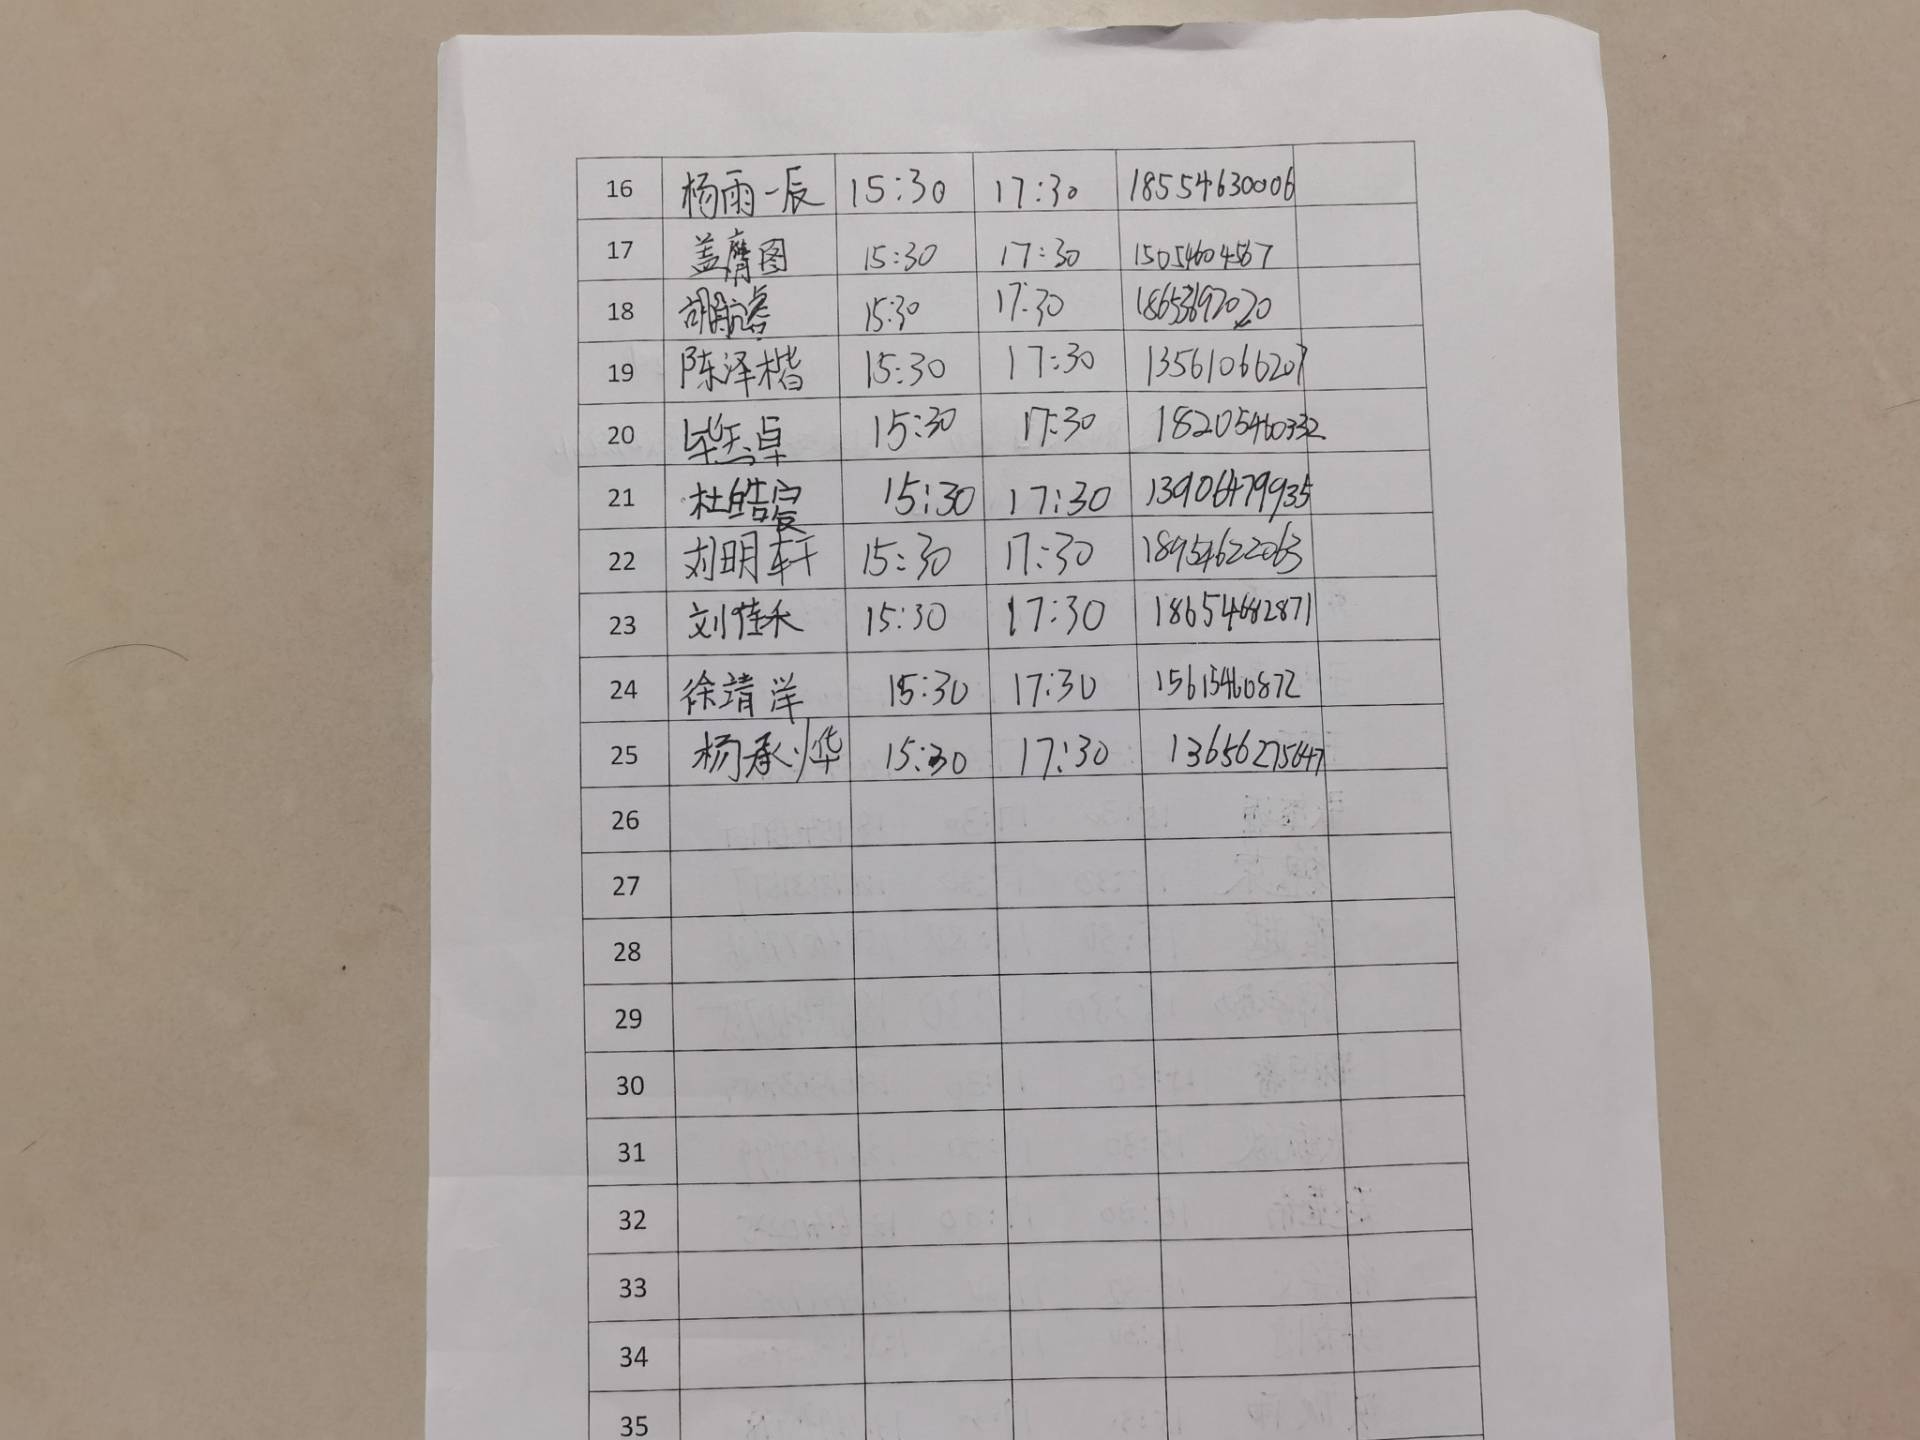 16 杨雨一辰 15:30 17:30 18554630006
17 盖膺图 15:30 17:30 15054604567
18 胡航睿 15:30 17:30
19 陈泽楷 15:30 17:30 13561066207
20 毕天卓 15:30 17:30 18205460332
21 杜皓宸 15:30 17:30 13906479935
22 刘明轩 15:30 17:30 18954622063
23 刘佳禾 15:30 17:30 18654682871
24 徐靖洋 15:30 17:30 15615460872
25 杨承烨 15:30 17:30 13656275647
26
27
28
29
30
31
32
33
34
35